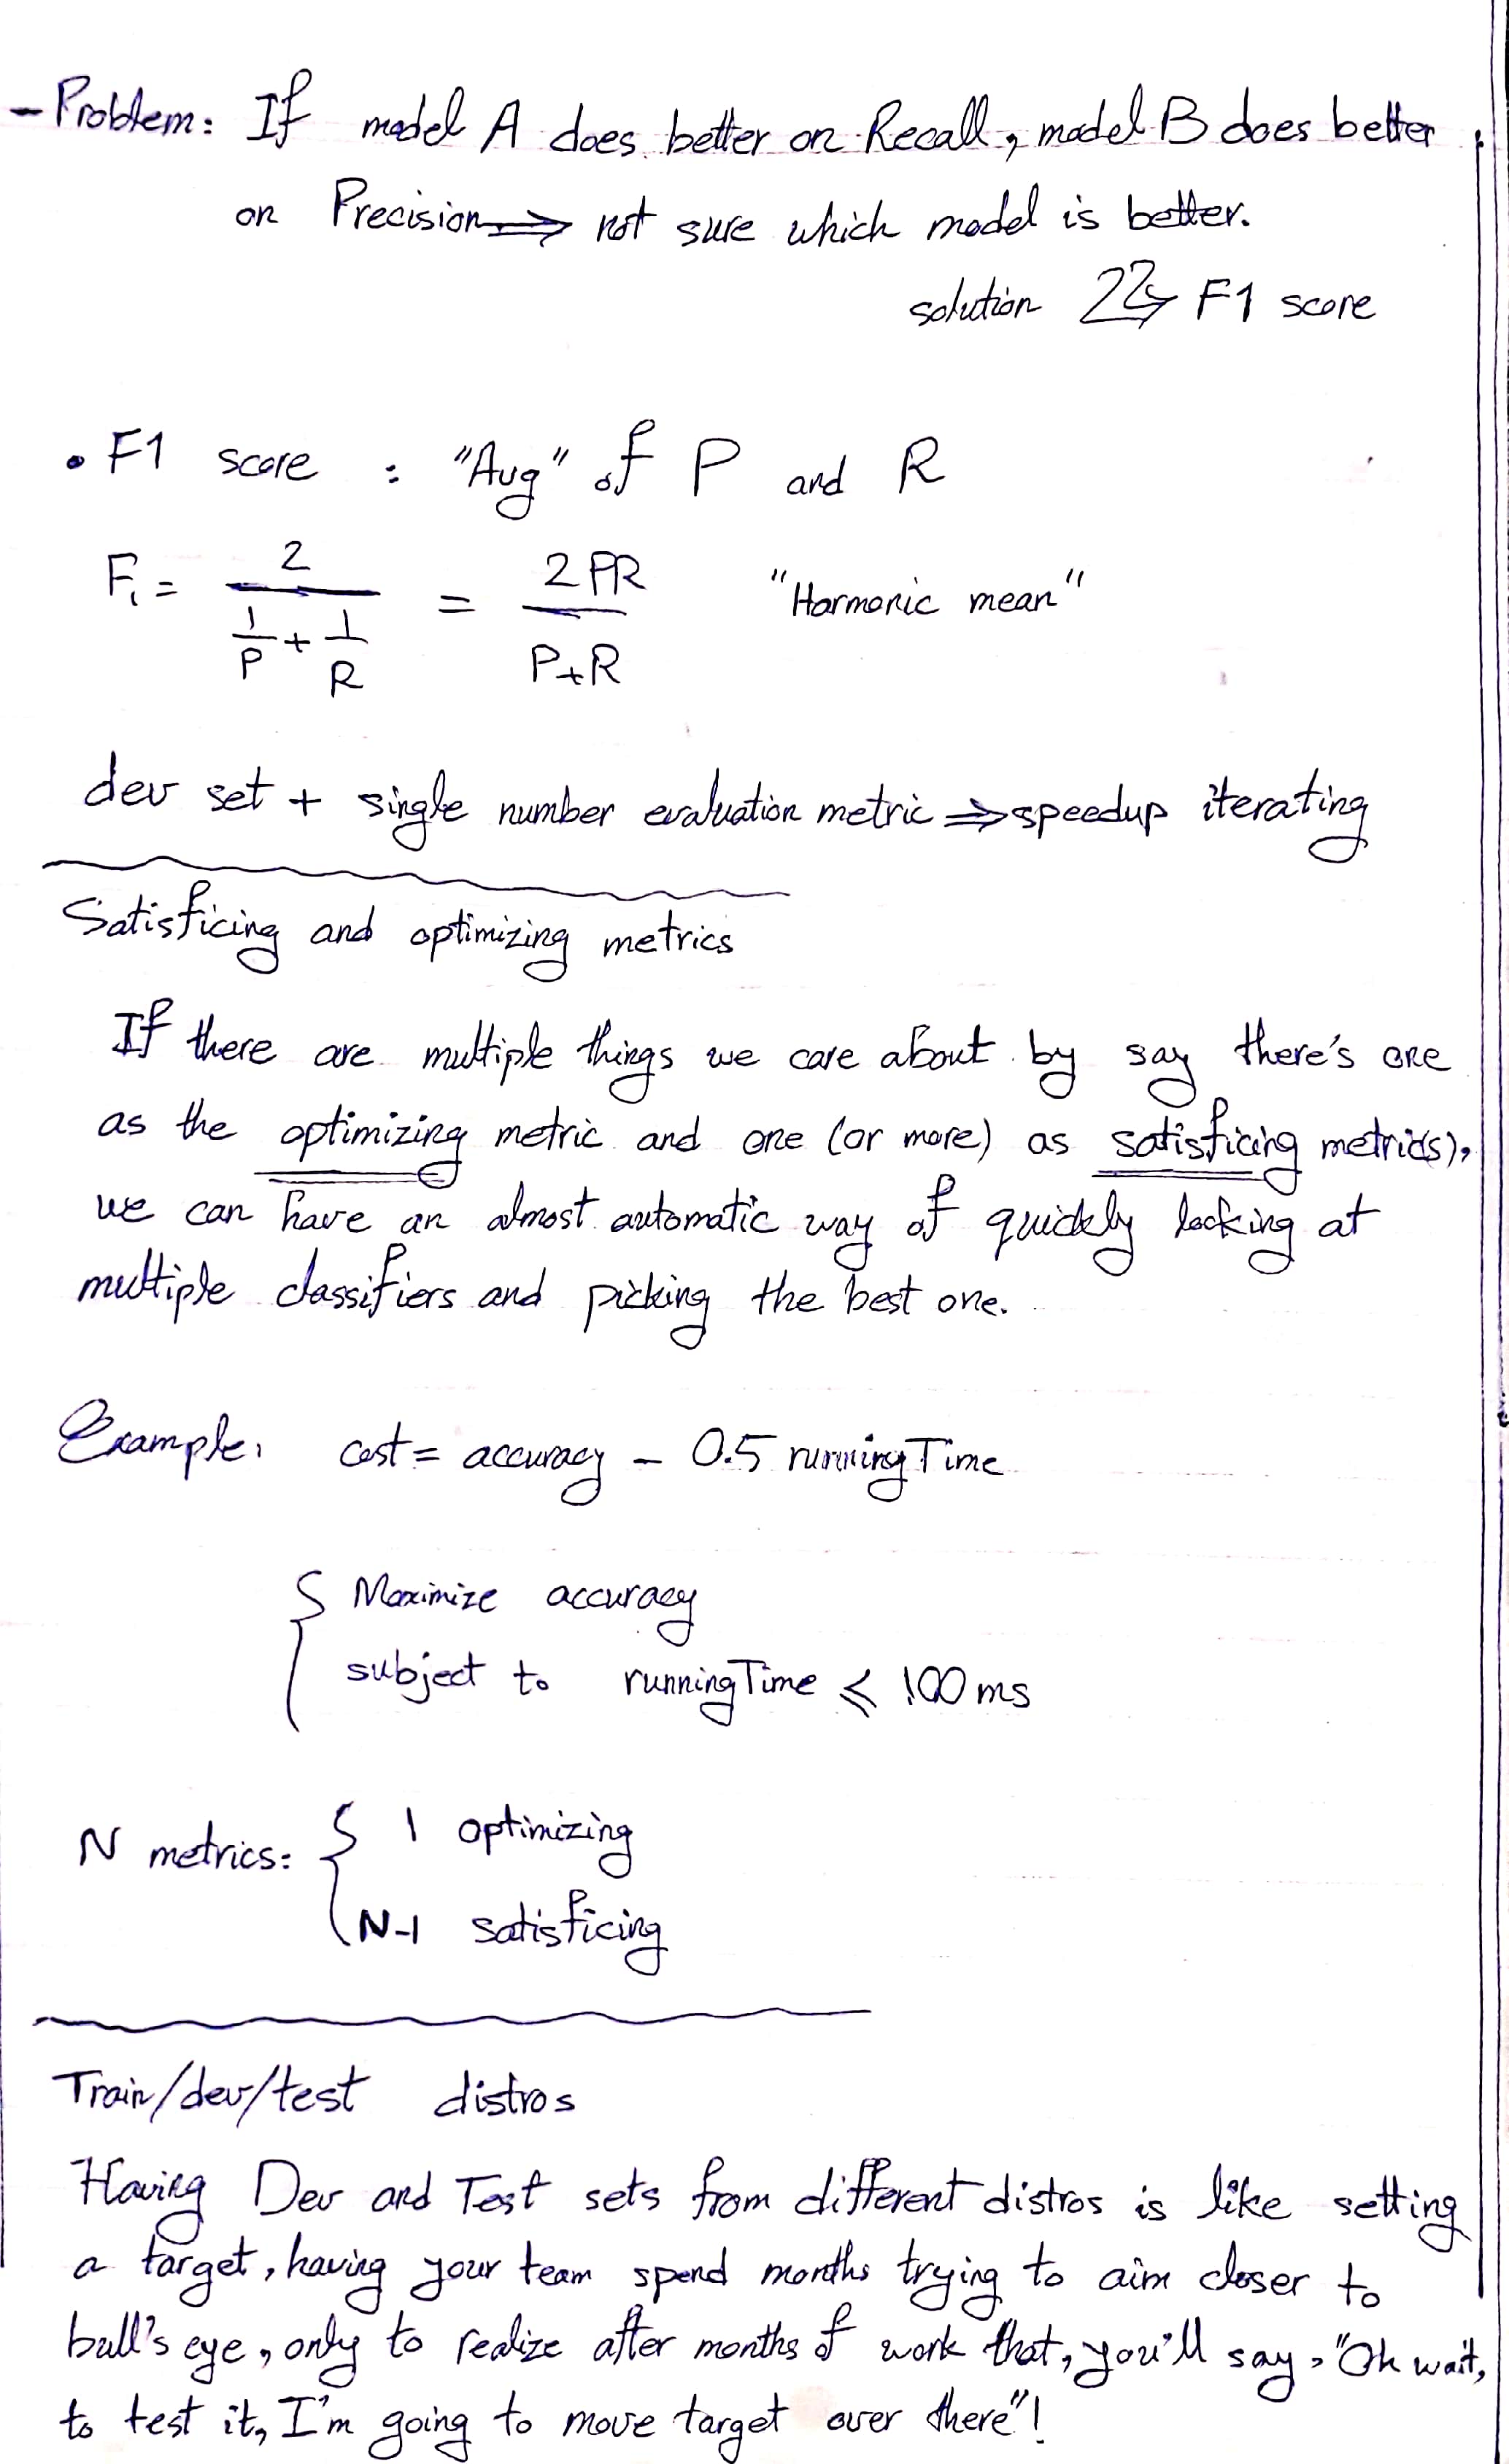 - Problem: If model A does better on Recall, model B does better
on Precision ⇒ not sure which model is better.
solution ⇒ F1 score
• F1 score : "Avg" of P and R
F₁ = 2 / (1/P + 1/R) = 2PR / (P+R) "Harmonic mean"
dev set + single number evaluation metric ⇒ speedup iterating
Satisficing and optimizing metrics
If there are multiple things we care about by say there's one
as the optimizing metric and one (or more) as satisficing metric(s),
we can have an almost automatic way of quickly looking at
multiple classifiers and picking the best one.
Example: cost = accuracy - 0.5 runningTime
{ Maximize accuracy
subject to runningTime ⩽ 100 ms
N metrics: { 1 optimizing
N-1 satisficing
Train/dev/test distros
Having Dev and Test sets from different distros is like setting
a target, having your team spend months trying to aim closer to
bull's eye, only to realize after months of work that, you'll say, "Oh wait,
to test it, I'm going to move target over there"!